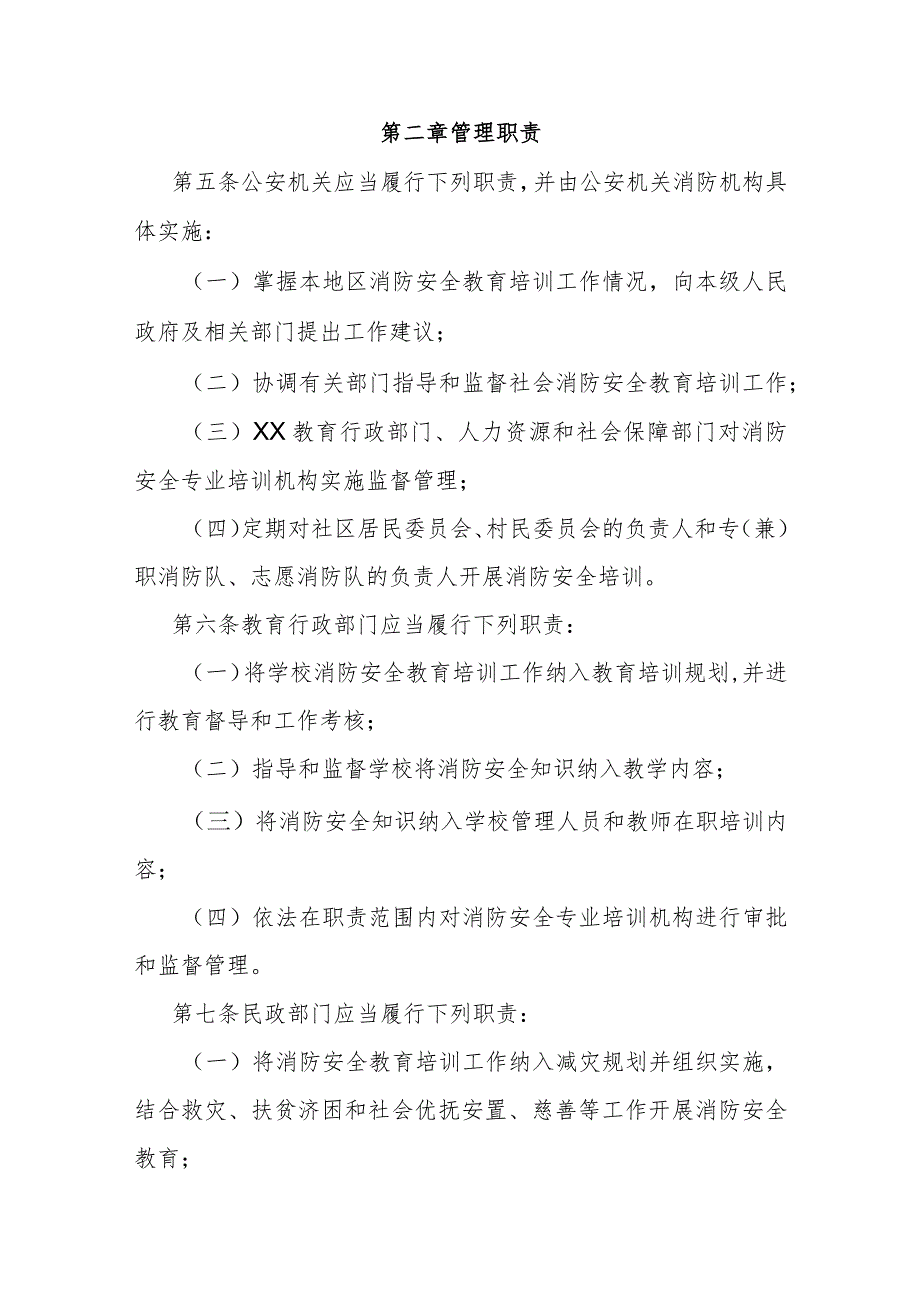 第二章管理职责
第五条公安机关应当履行下列职责,并由公安机关消防机构具
体实施：
（一）掌握本地区消防安全教育培训工作情况，向本级人民
政府及相关部门提出工作建议；
（二）协调有关部门指导和监督社会消防安全教育培训工作；
（三）XX教育行政部门、人力资源和社会保障部门对消防
安全专业培训机构实施监督管理；
（四）定期对社区居民委员会、村民委员会的负责人和专（兼）
职消防队、志愿消防队的负责人开展消防安全培训。
第六条教育行政部门应当履行下列职责：
（一）将学校消防安全教育培训工作纳入教育培训规划,并进
行教育督导和工作考核；
（二）指导和监督学校将消防安全知识纳入教学内容；
（三）将消防安全知识纳入学校管理人员和教师在职培训内
容；
（四）依法在职责范围内对消防安全专业培训机构进行审批
和监督管理。
第七条民政部门应当履行下列职责：
（一）将消防安全教育培训工作纳入减灾规划并组织实施，
结合救灾、扶贫济困和社会优抚安置、慈善等工作开展消防安全
教育；